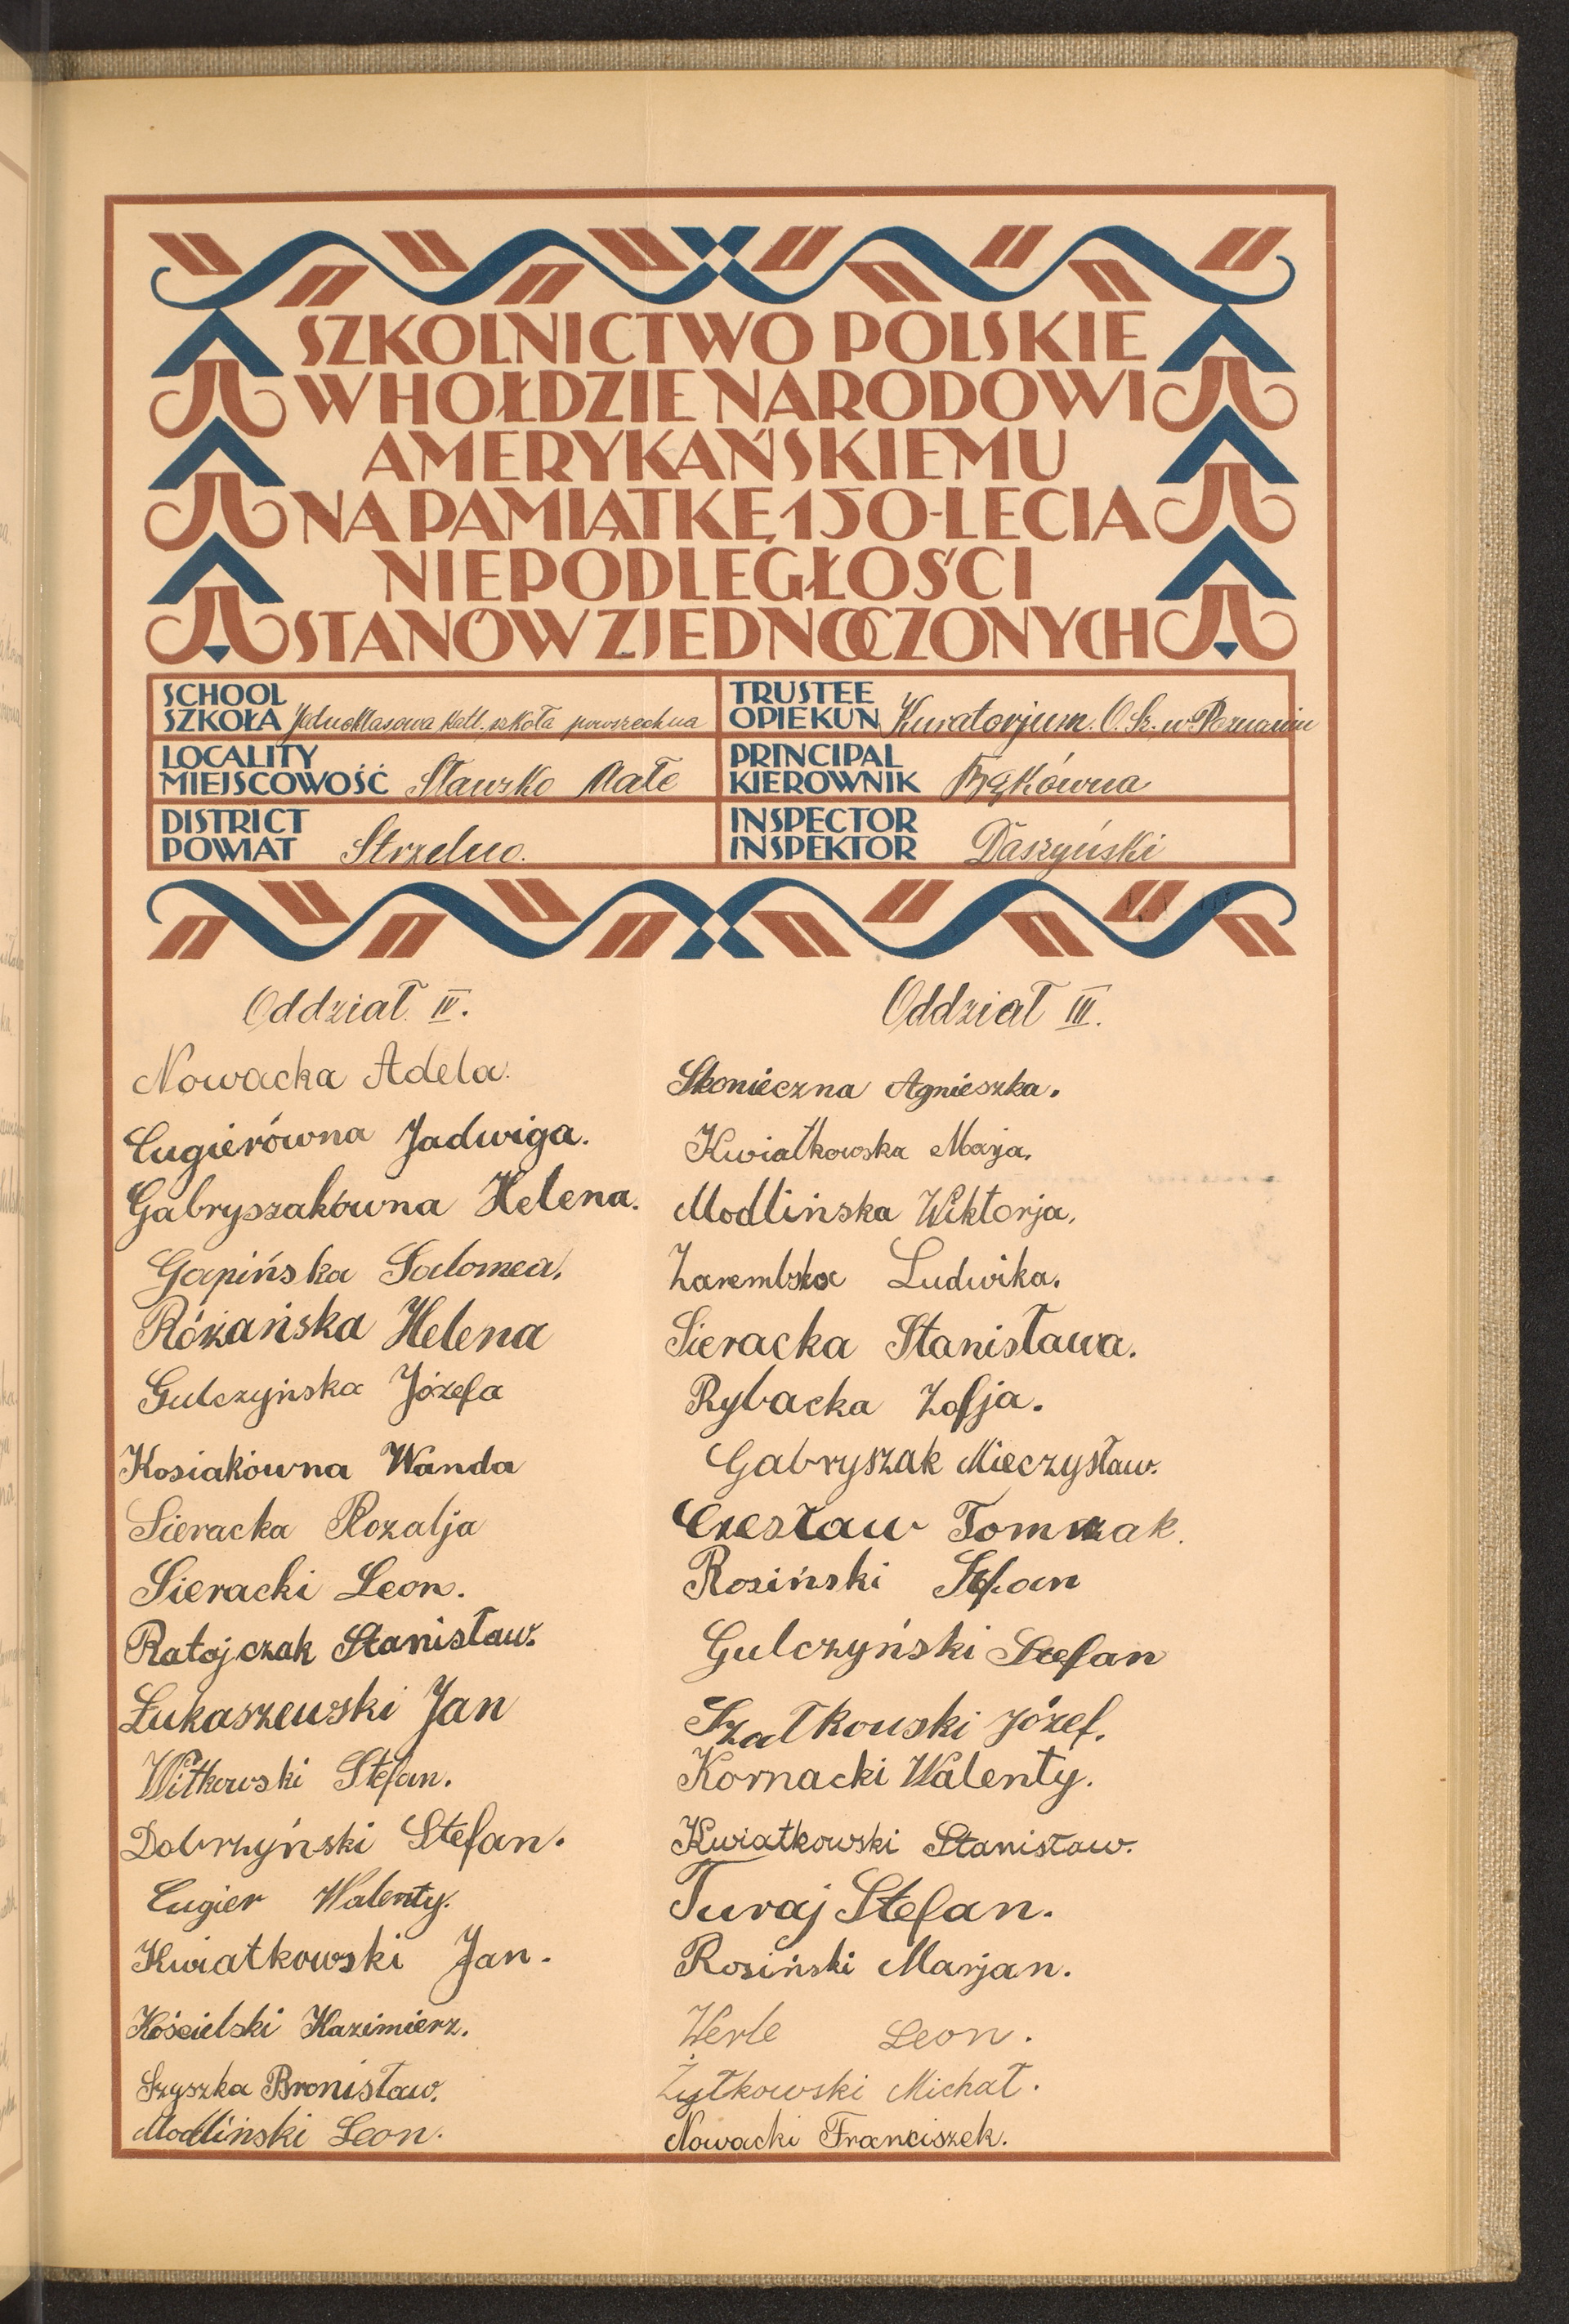 SZKOLNICTWO POLSKIE
W HOŁDZIE NARODOWI
AMERYKAŃSKIEMU
NA PAMIĄTKĘ 150-LECIA
NIEPODLEGŁOŚCI
STANÓW ZJEDNOCZONYCH
SCHOOL
SZKOŁA Jednoklasowa kath. szkoła powszechna
TRUSTEE
OPIEKUN Kuratorjum O. Sz. w Poznaniu
LOCALITY
MIEJSCOWOŚĆ Sławsko Małe
PRINCIPAL
KIEROWNIK Bąkówna
DISTRICT
POWIAT Strzelno.
INSPECTOR
INSPEKTOR Daszyński
Oddział IV.
Nowacka Adela.
Cugierówna Jadwiga.
Gabryszakówna Helena.
Gapińska Salomea.
Różańska Helena
Gulczyńska Józefa
Kosiakówna Wanda
Sieracka Rozalja
Sieracki Leon.
Ratajczak Stanisław.
Łukaszewski Jan
Witkowski Stefan.
Dobrzyński Stefan.
Cugier Walenty.
Kwiatkowski Jan.
Kościelski Kazimierz.
Szyszka Bronisław.
Modliński Leon.
Oddział III.
Skonieczna Agnieszka.
Kwiatkowska Marja.
Modlińska Wiktorja.
Zarembska Ludwika.
Sieracka Stanisława.
Rybacka Zofja.
Gabryszak Mieczysław.
Czesław Tomczak.
Rosiński Stefan
Gulczyński Stefan
Szatkowski Józef.
Kornacki Walenty.
Kwiatkowski Stanisław.
Turaj Stefan.
Rosiński Marjan.
Werle Leon.
Żytkowski Michał.
Nowacki Franciszek.